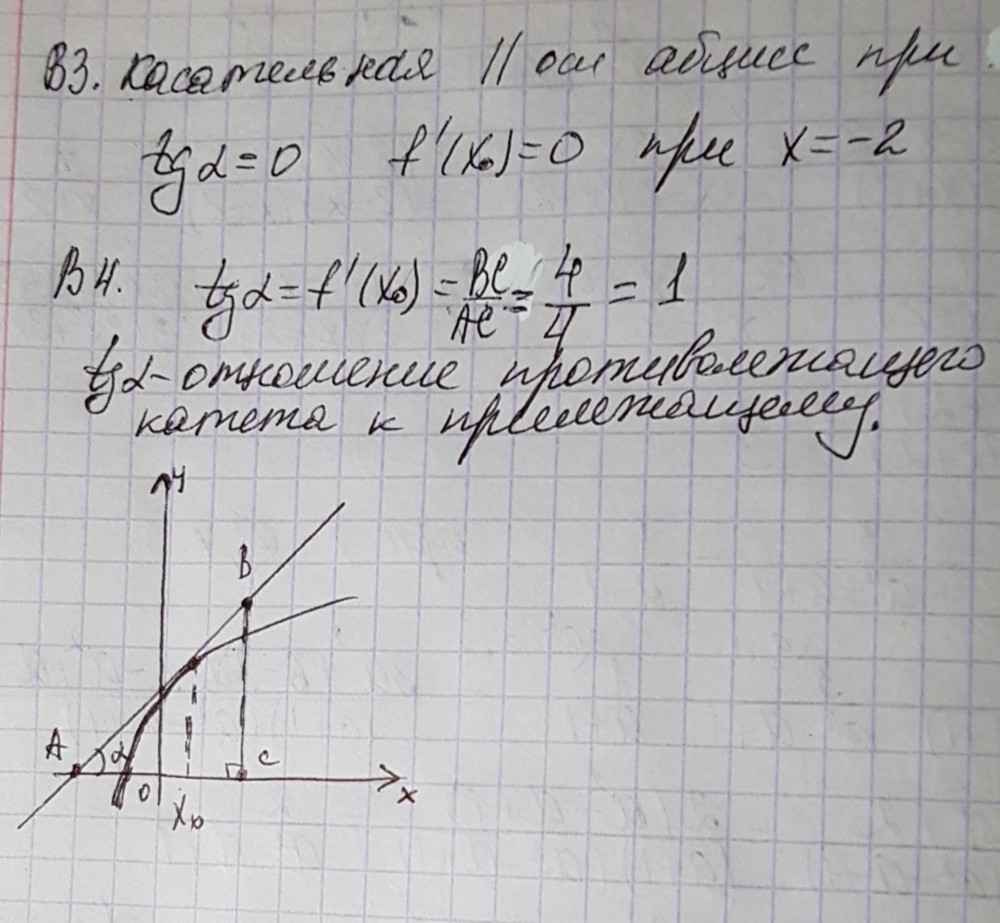 В3. Касательная || оси абцисс при
tg α = 0 f'(x₀) = 0 при x = -2
В4. tg α = f'(x₀) = BC/AC = 4/4 = 1
tg α - отношение противолежащего
катета к прилежащему.
y
B
A α C
0 x₀ x